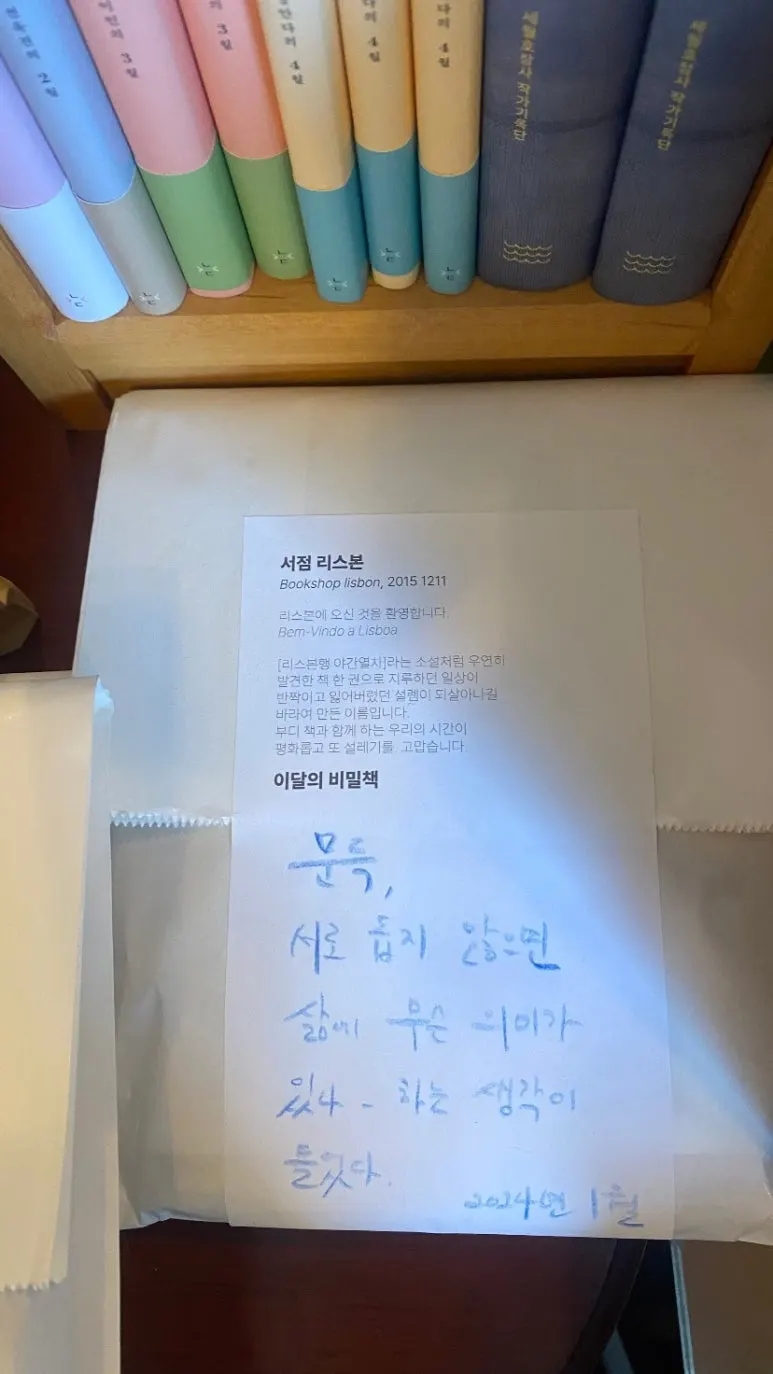 의 2월
의 3월
의 3월
의 4월
의 4월
의 4월
세월호참사 작가기록단
세월호참사 작가기록단
서점 리스본
Bookshop lisbon, 2015 1211
리스본에 오신 것을 환영합니다.
Bem-Vindo a Lisboa
[리스본행 야간열차]라는 소설처럼 우연히
발견한 책 한 권으로 지루하던 일상이
반짝이고 잃어버렸던 설렘이 되살아나길
바라여 만든 이름입니다.
부디 책과 함께 하는 우리의 시간이
평화롭고 또 설레기를. 고맙습니다.
이달의 비밀책
문득,
서로 돕지 않으면
삶에 무슨 의미가
있나 - 하는 생각이
들었다.
2024년 1월